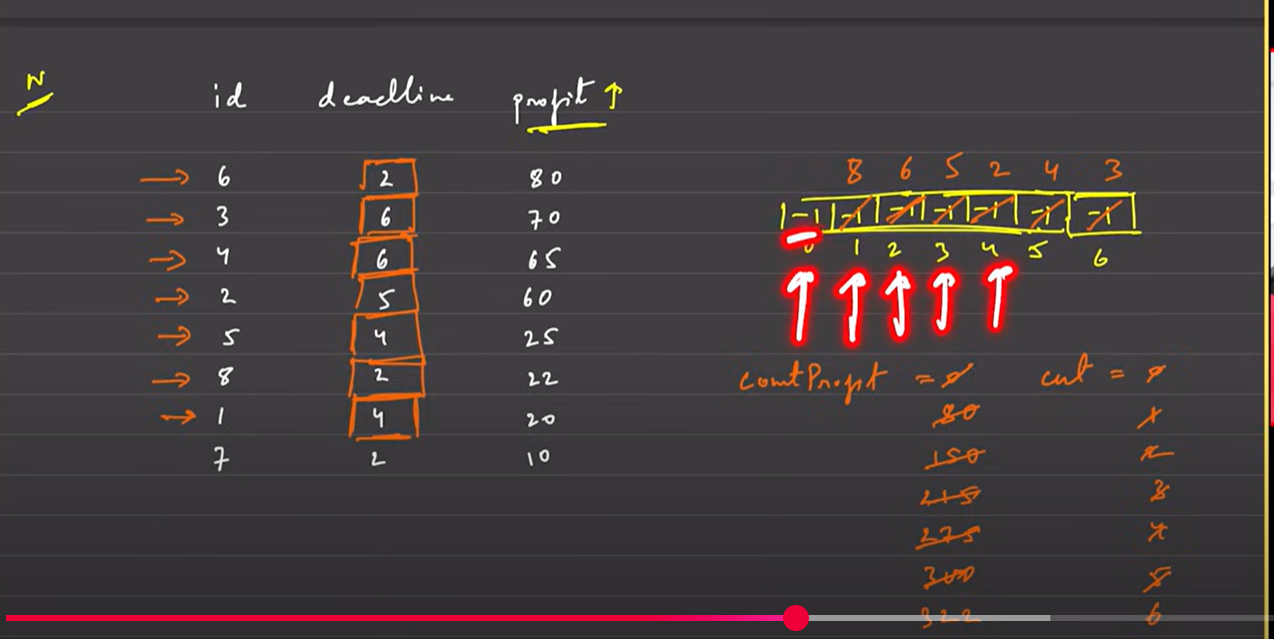 N
id deadline profit ↑
→ 6 2 80
→ 3 6 70
→ 4 6 65
→ 2 5 60
→ 5 4 25
→ 8 2 22
→ 1 4 20
7 2 10
8 6 5 2 4 3
-1 -1 -1 -1 -1 -1 -1
0 1 2 3 4 5 6
countProfit = 0 cnt = 0
80 1
150 2
215 3
275 4
300 5
322 6